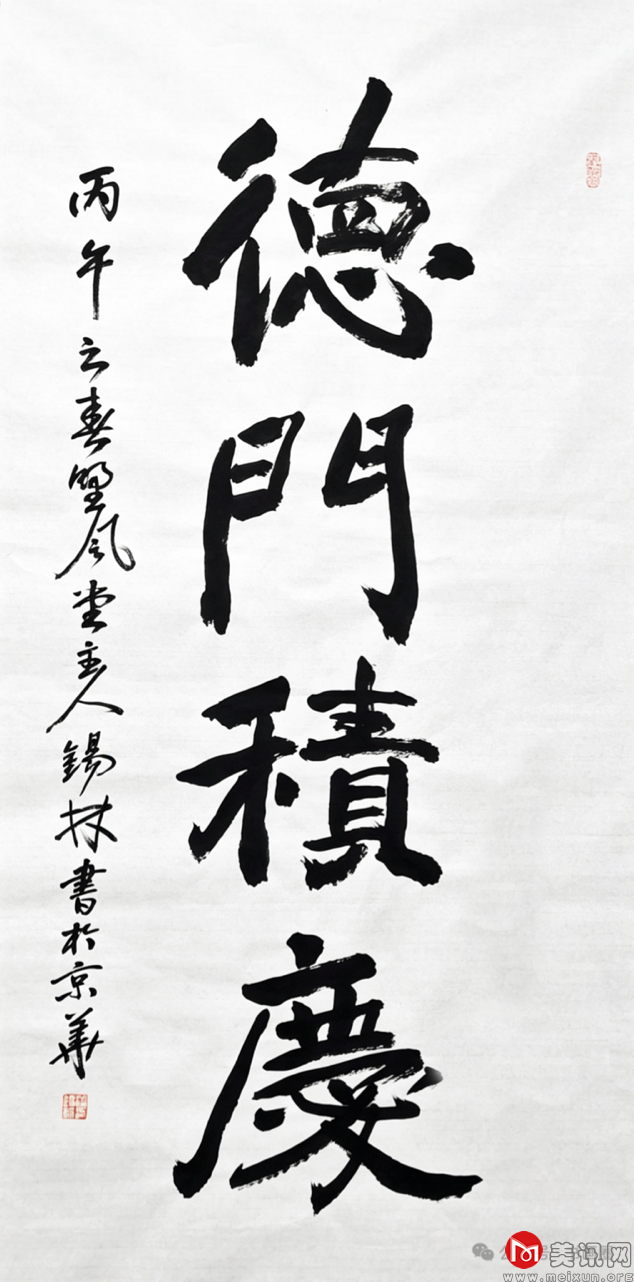 德門積慶
丙午之春墅風堂主人錫林書於京華
美讯网
www.meixun.org